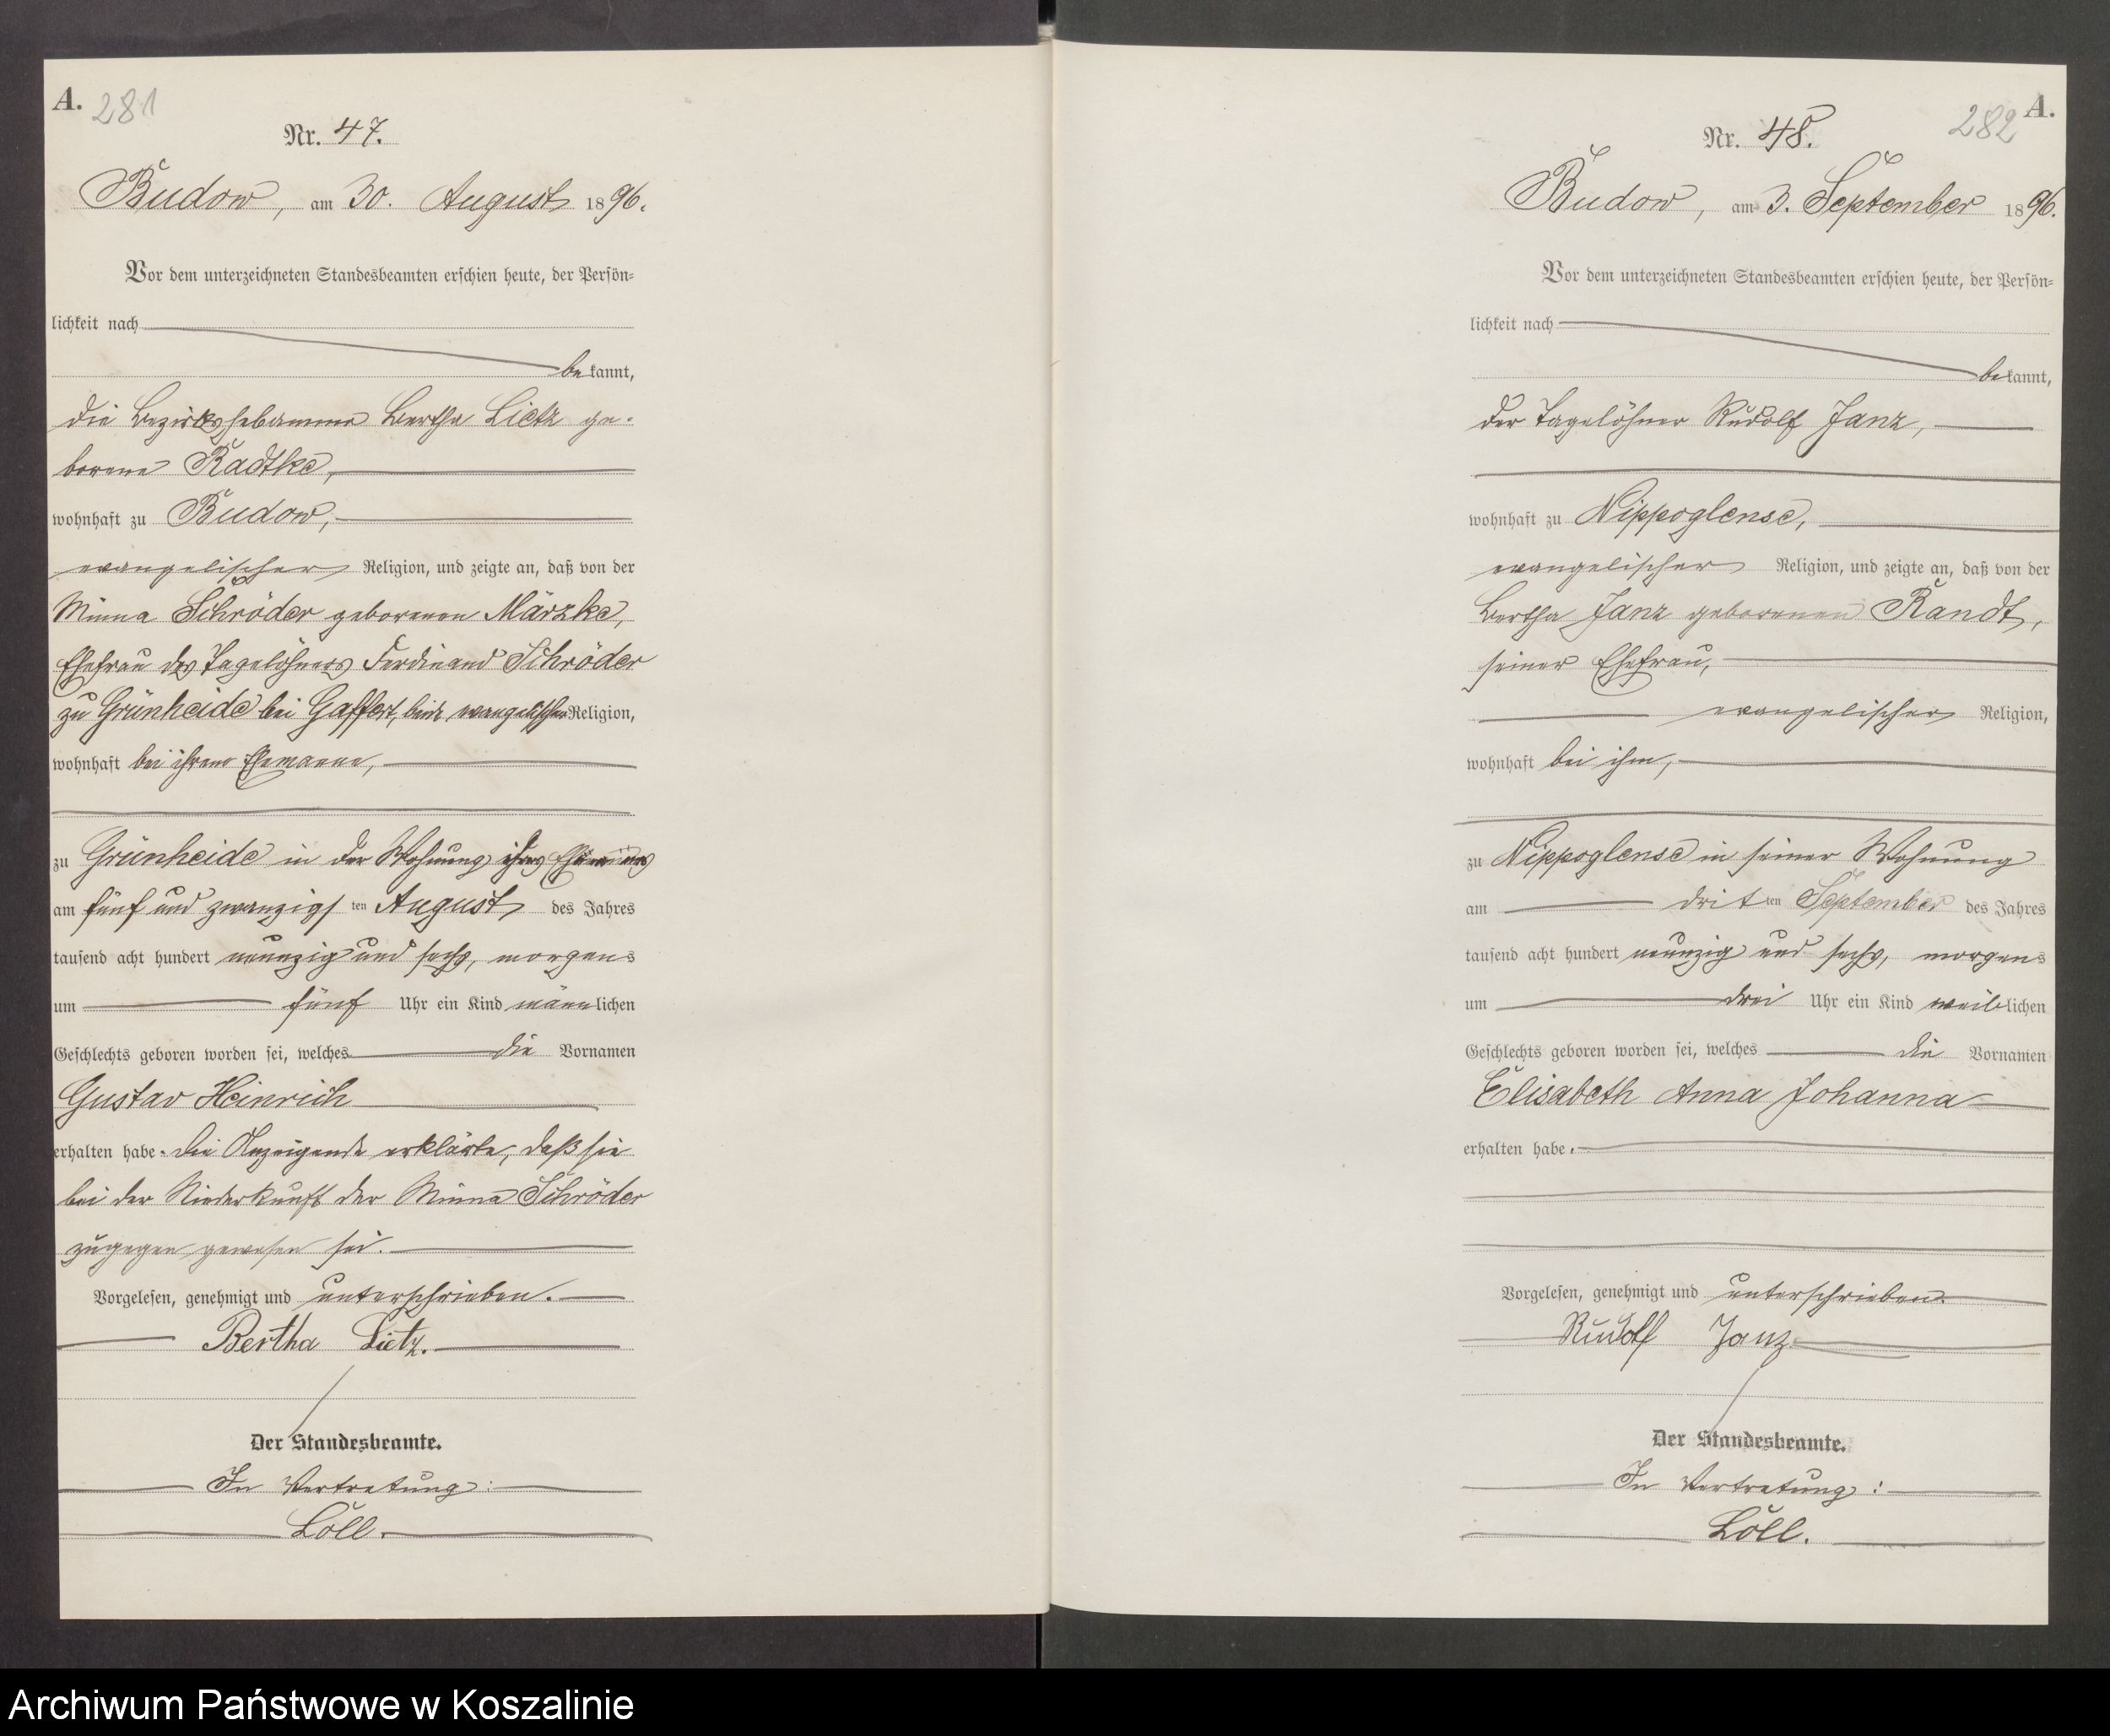 A. 281
Nr. 47.
Budow, am 30. August 1896.
Vor dem unterzeichneten Standesbeamten erschien heute, der Persön-
lichkeit nach
bekannt,
die Bezirkshebamme Bertha Lietz ge-
borene Radtke,
wohnhaft zu Budow,
evangelischer Religion, und zeigte an, daß von der
Minna Schröder geborenen Märzke,
Ehefrau des Tagelöhners Ferdinand Schröder
zu Grünheide bei Gaffert, beide evangelischer Religion,
wohnhaft bei ihrem Ehemanne,
zu Grünheide in der Wohnung ihres Ehemannes
am fünf und zwanzigsten August des Jahres
tausend acht hundert neunzig und sechs, morgens
um fünf Uhr ein Kind männlichen
Geschlechts geboren worden sei, welches die Vornamen
Gustav Heinrich
erhalten habe. Die Anzeigende erklärte, daß sie
bei der Niederkunft der Minna Schröder
zugegen gewesen sei.
Vorgelesen, genehmigt und unterschrieben.
Bertha Lietz.
Der Standesbeamte.
In Vertretung:
Löll.
282 A.
Nr. 48.
Budow, am 3. September 1896.
Vor dem unterzeichneten Standesbeamten erschien heute, der Persön-
lichkeit nach
bekannt,
der Tagelöhner Rudolf Janz,
wohnhaft zu Nippoglense,
evangelischer Religion, und zeigte an, daß von der
Bertha Janz geborenen Randt,
seiner Ehefrau,
evangelischer Religion,
wohnhaft bei ihm,
zu Nippoglense in seiner Wohnung
am dritten September des Jahres
tausend acht hundert neunzig und sechs, morgens
um drei Uhr ein Kind weiblichen
Geschlechts geboren worden sei, welches die Vornamen
Elisabeth Anna Johanna
erhalten habe.
Vorgelesen, genehmigt und unterschrieben.
Rudolf Janz
Der Standesbeamte.
In Vertretung:
Löll.
Archiwum Państwowe w Koszalinie